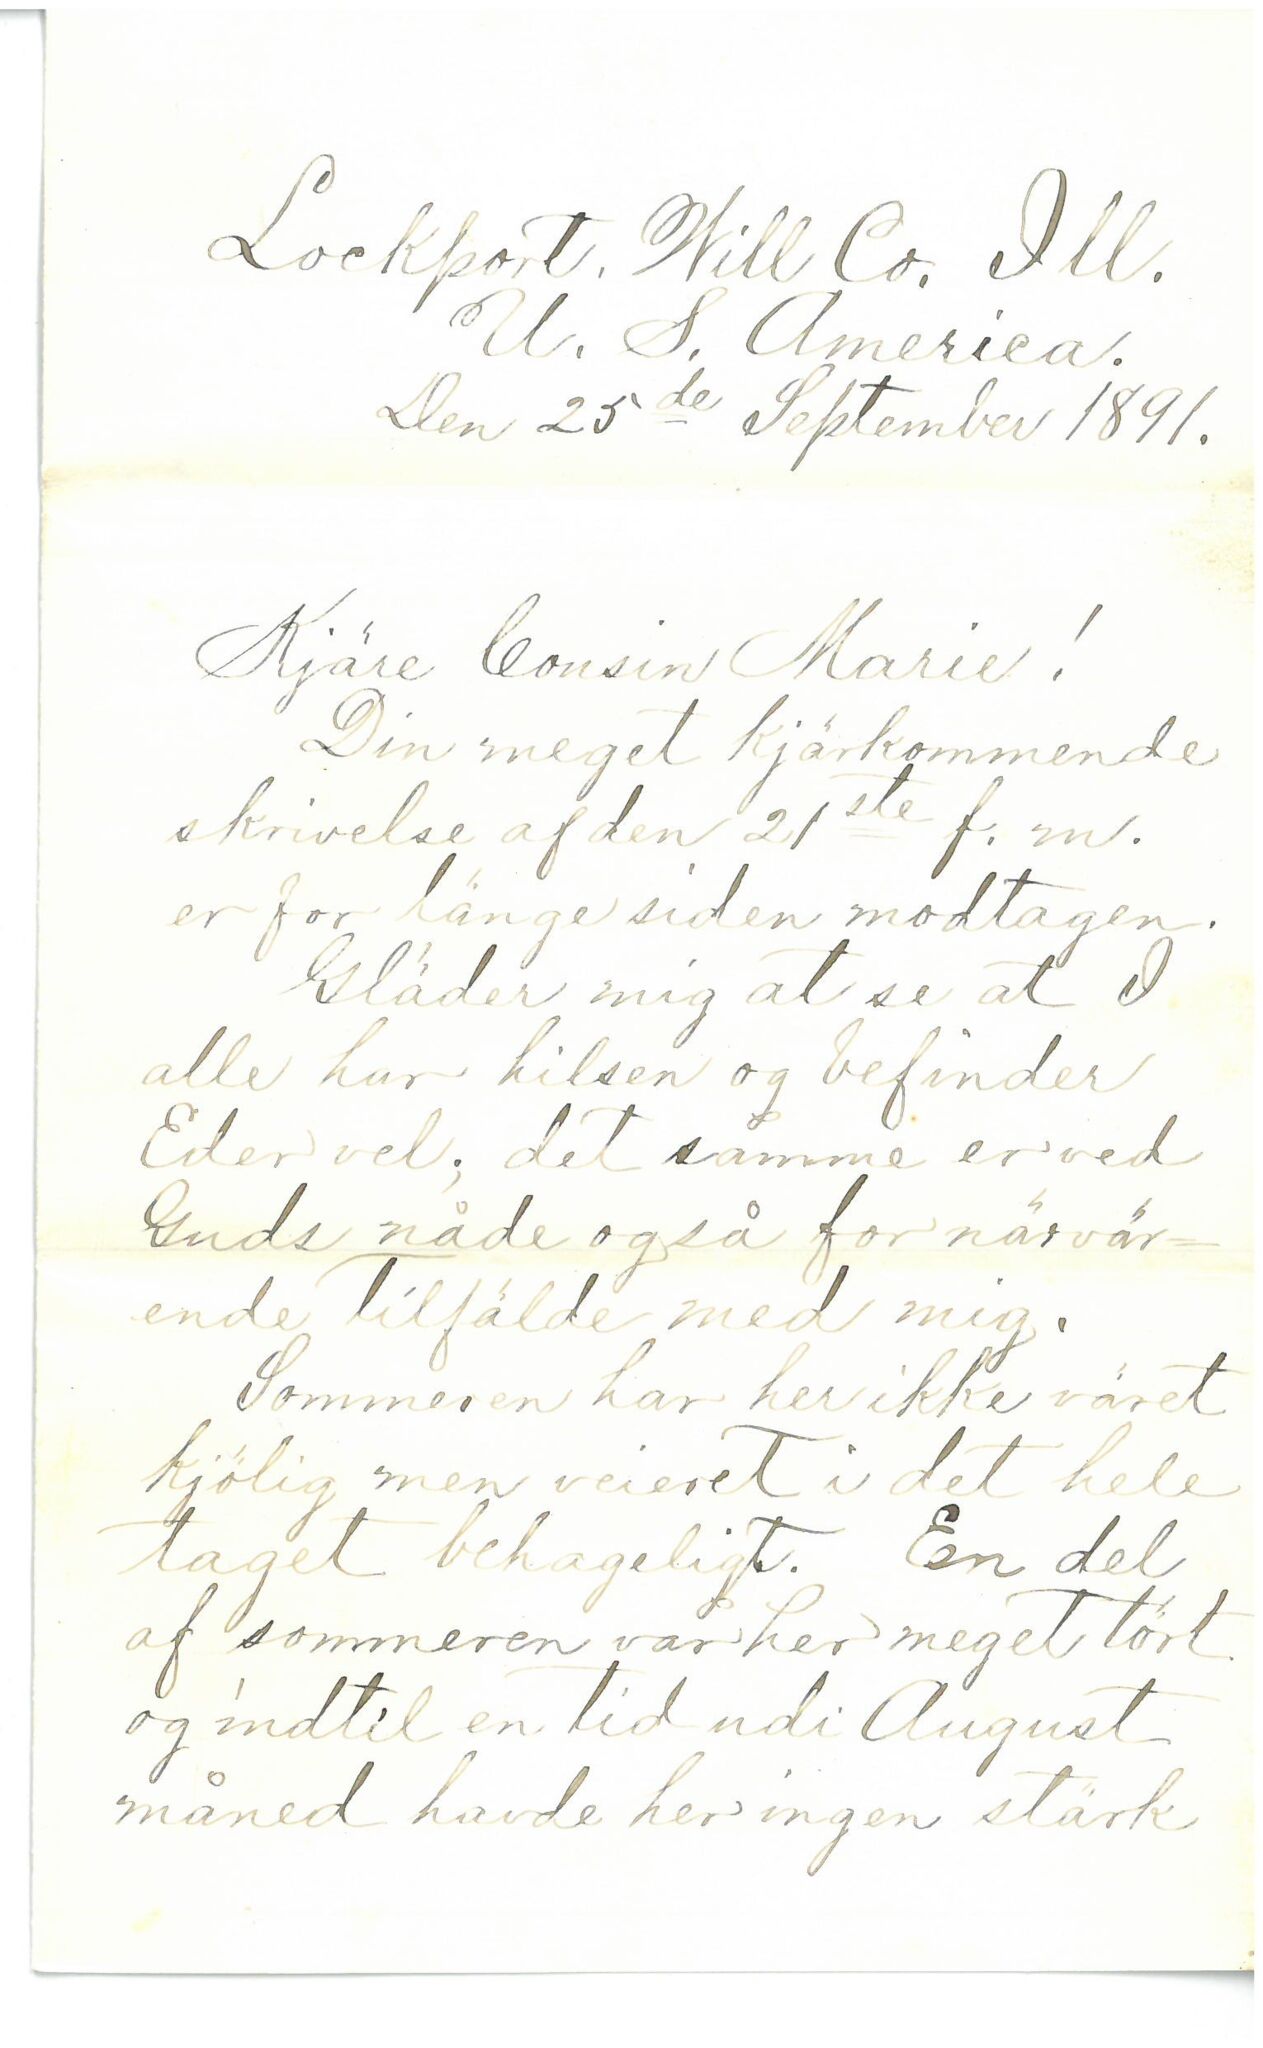 Lockport. Will Co. Ill.
U. S. America.
Den 25de September 1891.
Kjäre Cousin Marie!
Din meget kjärkommende
skrivelse af den 21ste f. m.
er for länge siden modtagen.
Gläder mig at se at I
alle har hilsen og befinder
Eder vel; det samme er ved
Guds nåde også for närvär=
ende tilfälde med mig.
Sommeren har her ikke väret
kjölig men veieret i det hele
taget behageligt. En del
af sommeren var her meget tört
og indtil en tid udi August
måned havde her ingen stärk